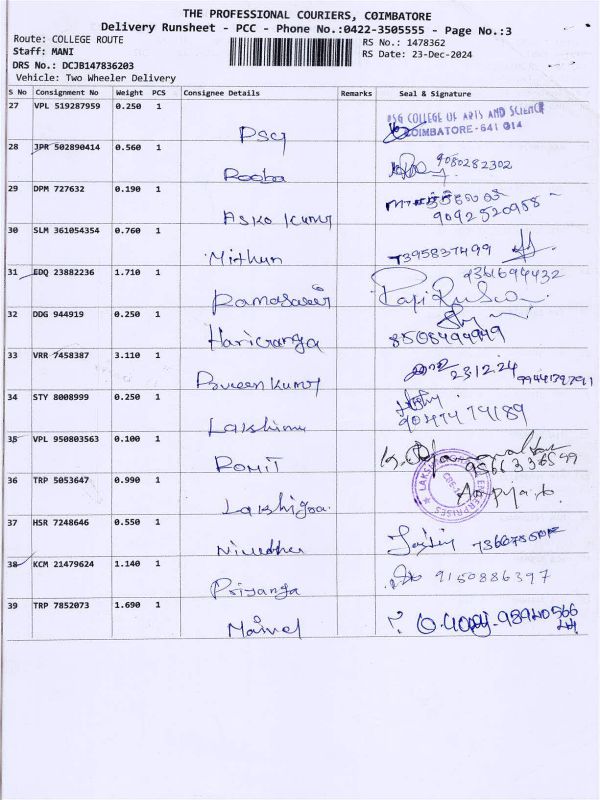 THE PROFESSIONAL COURIERS, COIMBATORE
Delivery Runsheet - PCC - Phone No.:0422-3505555 - Page No.:3
Route: COLLEGE ROUTE
RS No.: 1478362
Staff: MANI
RS Date: 23-Dec-2024
DRS No.: DCJB147836203
Vehicle: Two Wheeler Delivery
S No Consignment No Weight PCS Consignee Details Remarks Seal & Signature
27 VPL 519287959 0.250 1
PSG COLLEGE OF ARTS AND SCIENCE
COIMBATORE-641 014
PSG
28 JPR 502890414 0.560 1
9080282302
Rooba
29 DPM 727632 0.190 1
9092520958
Asko Kumar
30 SLM 361054354 0.760 1
7395837499
Mithun
31 EDQ 23882236 1.710 1
9361694432
32 DDG 944919 0.250 1
8508499949
33 VRR 7458387 3.110 1
23.12.24
Praveen Kumar
34 STY 8008999 0.250 1
Lakshmi
35 VPL 950803563 0.100 1
ROHIT
36 TRP 5053647 0.990 1
ENTERPRISES
37 HSR 7248646 0.550 1
38 KCM 21479624 1.140 1
9150886397
Priyanga
39 TRP 7852073 1.690 1